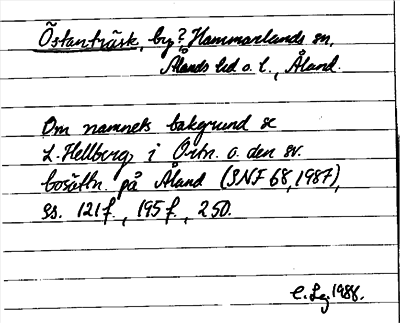 Östanträsk, by? Hammarlands sn,
Ålands hd o. l., Åland.
Om namnets bakgrund se
L. Hellberg, i Ortn. o. den sv.
bosättn. på Åland (SNF 68, 1987),
ss. 121 f., 195 f., 250.
1988.